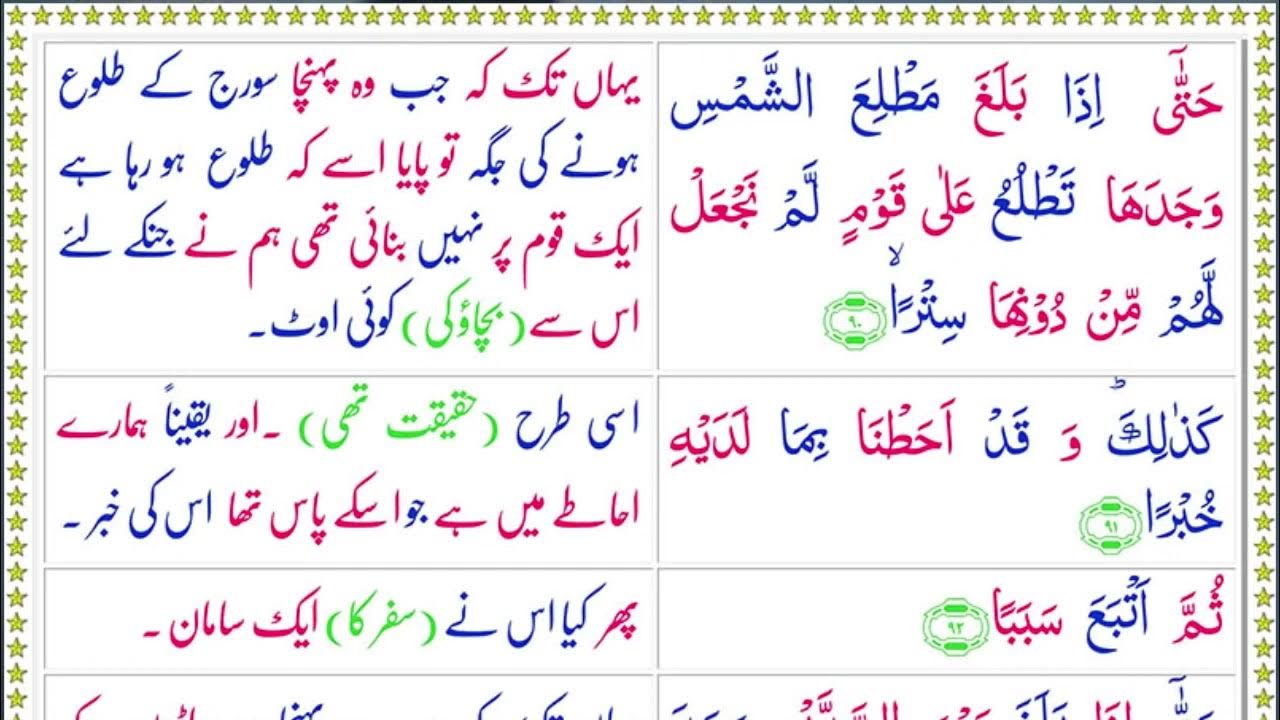 حَتّٰٓى اِذَا بَلَغَ مَطْلِعَ الشَّمْسِ
وَجَدَهَا تَطْلُعُ عَلٰى قَوْمٍ لَّمْ نَجْعَلْ
لَّهُمْ مِّنْ دُوْنِهَا سِتْرًاۙ ۹۰
یہاں تک کہ جب وہ پہنچا سورج کے طلوع
ہونے کی جگہ تو پایا اسے کہ طلوع ہو رہا ہے
ایک قوم پر نہیں بنائی تھی ہم نے جنکے لئے
اس سے (بچاؤ کی) کوئی اوٹ۔
كَذٰلِكَؕ وَ قَدْ اَحَطْنَا بِمَا لَدَيْهِ
خُبْرًا ۹۱
اسی طرح (حقیقت تھی) ۔اور یقیناً ہمارے
احاطے میں ہے جو اسکے پاس تھا اس کی خبر۔
ثُمَّ اَتْبَعَ سَبَبًا ۹۲
پھر کیا اس نے (سفر کا) ایک سامان۔